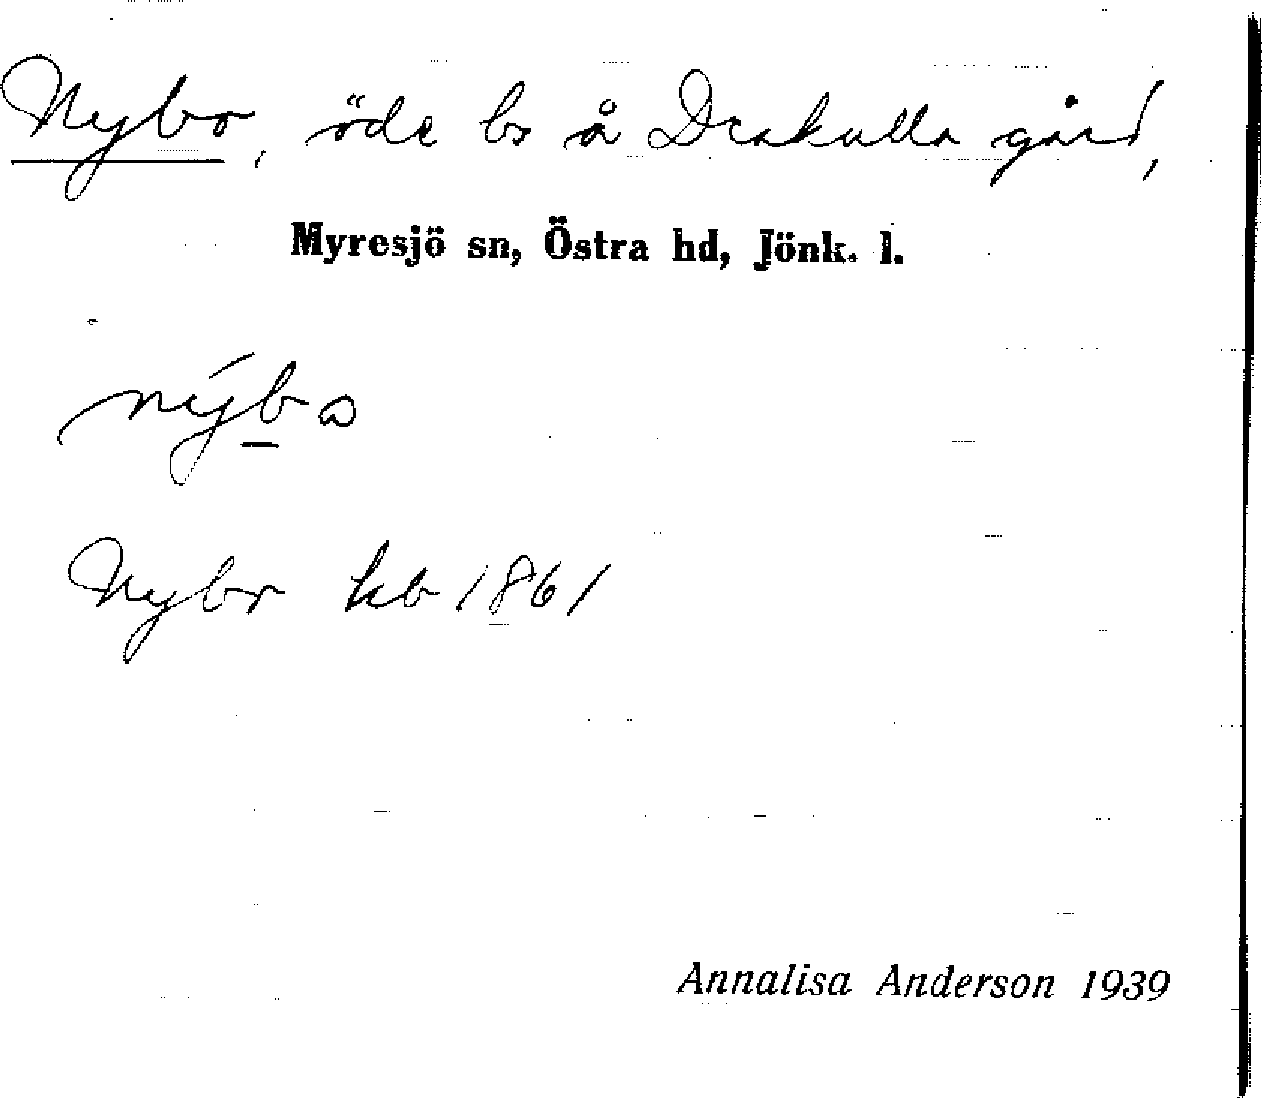 Nybo, öde bs å Drakulla gård,
Myresjö sn, Östra hd, Jönk. l.
nýbo
Nybo kb 1861
Annalisa Anderson 1939